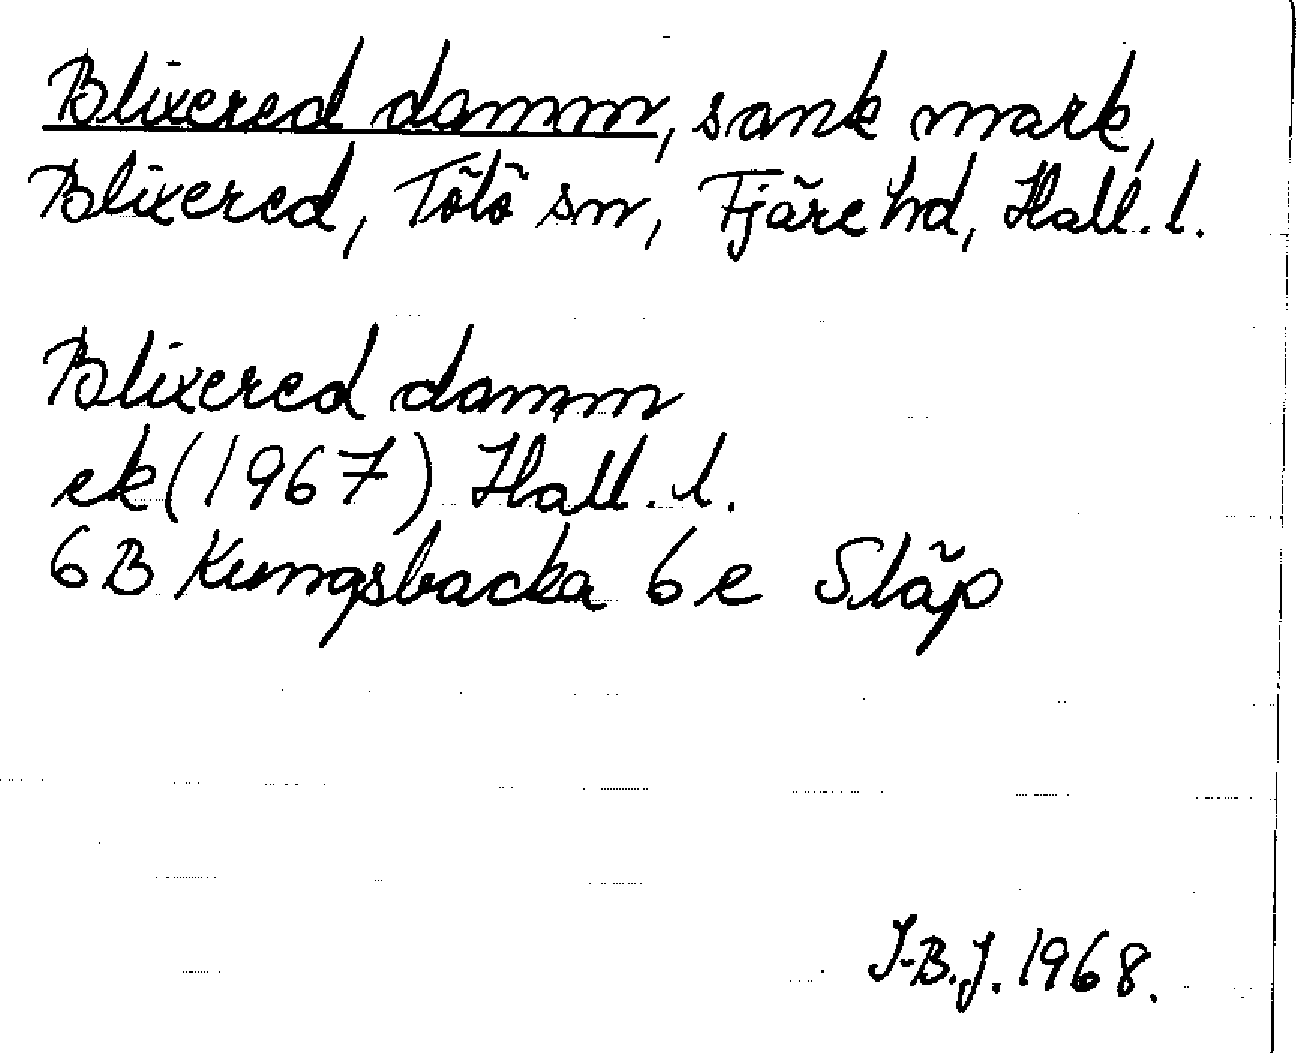 Blixered damm, sank mark,
Blixered, Tölö sn, Fjäre hd, Hall. l.
Blixered damm
ek (1967) Hall. l.
6B Kungsbacka 6e Släp
I-B.J. 1968.